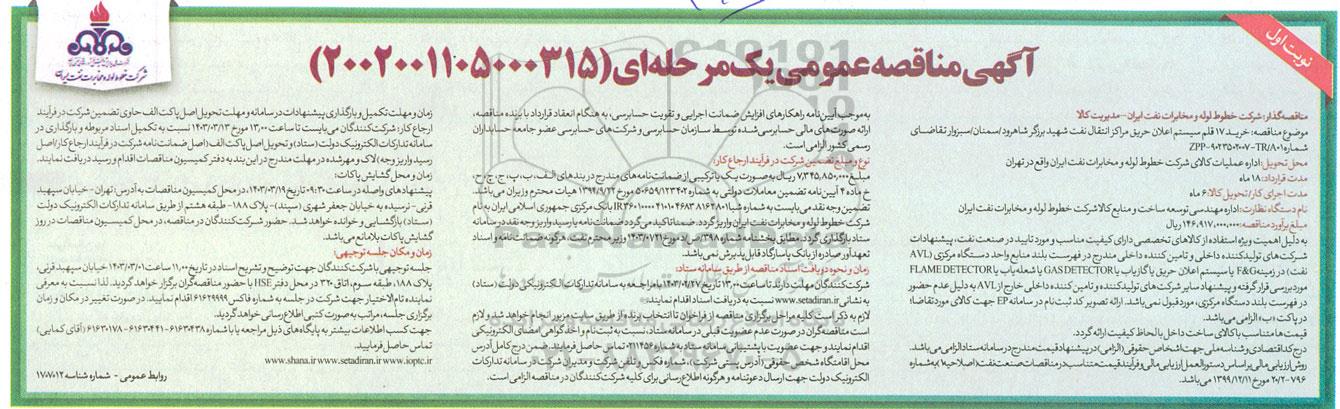 نوبت اول
آگهی مناقصه عمومی یک مرحله‌ای (۲۰۰۲۰۰۱۱۰۵۰۰۰۳۱۵)
شرکت خطوط لوله و مخابرات نفت ایران
مناقصه‌گذار: شرکت خطوط لوله و مخابرات نفت ایران - مدیریت کالا
موضوع مناقصه: خرید ۱۷ قلم سیستم اعلان حریق مراکز انتقال نفت شهید برزگر شاهرود/سمنان/سبزوار تقاضای
شماره ZPP-9023502007-TR/801
محل تحویل: اداره عملیات کالای شرکت خطوط لوله و مخابرات نفت ایران واقع در تهران
مدت قرارداد: ۱۸ ماه
مدت اجرای کار/تحویل کالا: ۶ ماه
نام دستگاه نظارت: اداره مهندسی توسعه ساخت و منابع کالا شرکت خطوط لوله و مخابرات نفت ایران
مبلغ برآورد مناقصه: ۱۴۶,۹۱۷,۰۰۰,۰۰۰ ریال
به دلیل اهمیت ویژه استفاده از کالاهای تخصصی دارای کیفیت مناسب و مورد تایید در صنعت نفت، پیشنهادات
شرکت‌های تولیدکننده داخلی و تامین کننده داخلی مندرج در فهرست بلند منابع واحد دستگاه مرکزی (AVL
نفت) در زمینه F&G یا سیستم اعلان حریق یا گازیاب یا GAS DETECTOR یا شعله یاب یا FLAME DETECTOR
مورد بررسی قرار گرفته و پیشنهاد سایر شرکت‌های تولیدکننده و تامین کننده داخلی خارج از AVL به دلیل عدم حضور
در فهرست بلند دستگاه مرکزی، مورد قبول نمی‌باشد. ارائه تصویر کد ثبت نام در سامانه EP جهت کالای مورد تقاضا؛
در پاکت «ب» الزامی می‌باشد.
قیمت‌ها متناسب با کالای ساخت داخل با لحاظ کیفیت ارائه گردد.
درج کد اقتصادی و شناسه ملی جهت اشخاص حقوقی (الزامی) در پیشنهاد قیمت مندرج در سامانه ستاد الزامی می‌باشد.
روش ارزیابی مالی بر اساس دستورالعمل ارزیابی مالی و فرآیند قیمت متناسب در مناقصات صنعت نفت (اصلاحیه ۱) به شماره
۲۰/۲-۷۹۶ مورخ ۱۳۹۹/۱۲/۱۱ می‌باشد.
به موجب آیین‌نامه راهکارهای افزایش ضمانت اجرایی و تقویت حسابرسی، به هنگام انعقاد قرارداد با برنده مناقصه،
ارائه صورت‌های مالی حسابرسی شده توسط سازمان حسابرسی و شرکت‌های حسابرسی عضو جامعه حسابداران
رسمی کشور الزامی است.
نوع و مبلغ تضمین شرکت در فرآیند ارجاع کار:
مبلغ ۷,۳۴۵,۸۵۰,۰۰۰ ریال به صورت یک یا ترکیبی از ضمانت‌نامه‌های مندرج در بندهای الف، ب، پ، ج، چ، ح،
خ ماده ۴ آیین نامه تضمین معاملات دولتی به شماره ۱۲۳۴۰۲/ت۵۰۶۵۹ه مورخ ۱۳۹۴/۹/۲۲ هیات محترم وزیران می‌باشد.
تضمین وجه نقد می‌بایست به شماره شبا بانک مرکزی جمهوری اسلامی ایران به نام
شرکت خطوط لوله و مخابرات نفت ایران واریز گردد. ضمنا تاکید می‌گردد ضمانت‌نامه یا رسید واریز وجه نقد در سامانه
ستاد بارگذاری گردد. مطابق بخشنامه شماره وزیر محترم نفت، هرگونه ضمانت‌نامه و اسناد
تعهدآور صادره از بانک پاسارگاد قابل پذیرش نمی‌باشد.
زمان و نحوه دریافت اسناد مناقصه از طریق سامانه ستاد:
شرکت‌کنندگان مهلت دارند تا ساعت ۱۳:۰۰ تاریخ ۱۴۰۳/۰۲/۲۷ با مراجعه به سامانه تدارکات الکترونیکی دولت (ستاد)
به نشانی www.setadiran.ir نسبت به دریافت اسناد اقدام نمایند.
لازم به ذکر است کلیه مراحل برگزاری مناقصه از فراخوان تا انتخاب برنده از طریق سایت مزبور انجام خواهد شد و لازم
است مناقصه‌گران در صورت عدم عضویت قبلی در سامانه ستاد، نسبت به ثبت نام و اخذ گواهی امضای الکترونیکی
اقدام نمایند و جهت عضویت با پشتیبانی سامانه ستاد به شماره ۰۲۱۱۴۵۶ تماس حاصل فرمایند. ضمن درج کامل آدرس
محل اقامتگاه شخص حقوقی (آدرس پستی شرکت)، شماره فکس و تلفن شرکت و مدیران شرکت، در سامانه تدارکات
الکترونیک دولت جهت ارسال دعوتنامه و هرگونه اطلاع‌رسانی برای کلیه شرکت‌کنندگان در مناقصه الزامی است.
زمان و مهلت تکمیل و بارگذاری پیشنهادات در سامانه و مهلت تحویل اصل پاکت الف حاوی تضمین شرکت در فرآیند
ارجاع کار: شرکت‌کنندگان می‌بایست تا ساعت ۱۳:۰۰ مورخ ۱۴۰۳/۰۳/۱۳ نسبت به تکمیل اسناد مربوطه و بارگذاری در
سامانه تدارکات الکترونیک دولت (ستاد) و تحویل اصل پاکت الف (اصل ضمانت‌نامه شرکت در فرآیند ارجاع کار/اصل
رسید واریز وجه) لاک و مهر شده در مهلت مندرج در این بند به دفتر کمیسیون مناقصات اقدام و رسید دریافت نمایند.
زمان و محل گشایش پاکات:
پیشنهادهای واصله در ساعت ۰۹:۳۰ تاریخ ۱۴۰۳/۰۳/۱۹، در محل کمیسیون مناقصات به آدرس: تهران - خیابان سپهبد
قرنی - نرسیده به خیابان جعفر شهری (سپند) - پلاک ۱۸۸ - طبقه هشتم از طریق سامانه تدارکات الکترونیک دولت
(ستاد) بازگشایی و خوانده خواهد شد. حضور شرکت‌کنندگان در مناقصه در محل کمیسیون مناقصات در روز
گشایش پاکات بلامانع می‌باشد.
زمان و مکان جلسه توجیهی:
جلسه توجیهی با شرکت‌کنندگان جهت توضیح و تشریح اسناد در تاریخ ۱۴۰۳/۰۳/۰۱ ساعت ۱۱:۰۰ خیابان سپهبد قرنی،
پلاک ۱۸۸، طبقه سوم، اتاق ۳۲۰ در محل دفتر HSE با حضور مناقصه‌گران برگزار خواهد گردید. لذا نسبت به معرفی
نماینده تام‌الاختیار جهت شرکت در جلسه به شماره فاکس ۶۱۶۲۹۹۹۹ اقدام نمایید. در صورت تغییر در مکان و زمان
برگزاری جلسه، مراتب به صورت کتبی اطلاع‌رسانی خواهد گردید.
جهت کسب اطلاعات بیشتر به پایگاه‌های ذیل مراجعه یا با شماره ۶۱۶۳۰۴۳۸-۶۱۶۳۳۴۴۱-۶۱۶۳۰۱۷۸ (آقای کمایی)
تماس حاصل فرمایید.
www.shana.ir www.setadiran.ir www.ioptc.ir
روابط عمومی - شماره شناسه ۱۷۰۷۰۱۲